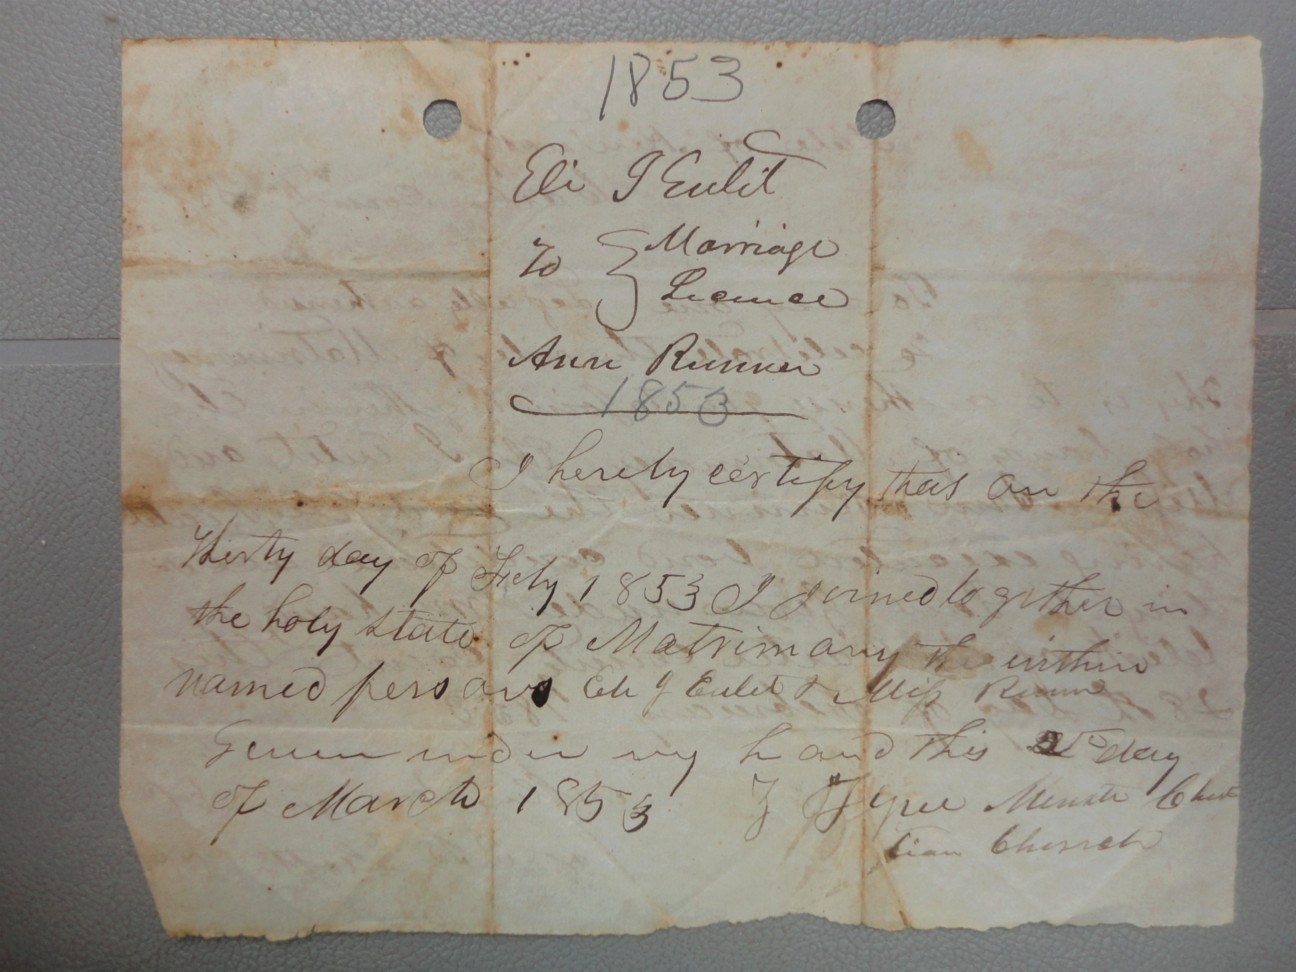 1853
Eli J Eulit
To Marriage
Licence
Ann Runner
1853
I hereby certify that on the
Thirty day of Feby 1853 I joined together in
the holy state of Matrimony the within
named persons Eli J Eulit & Miss Runner
Given under my hand this day
of March 1853 Tyree Christ
tian Church